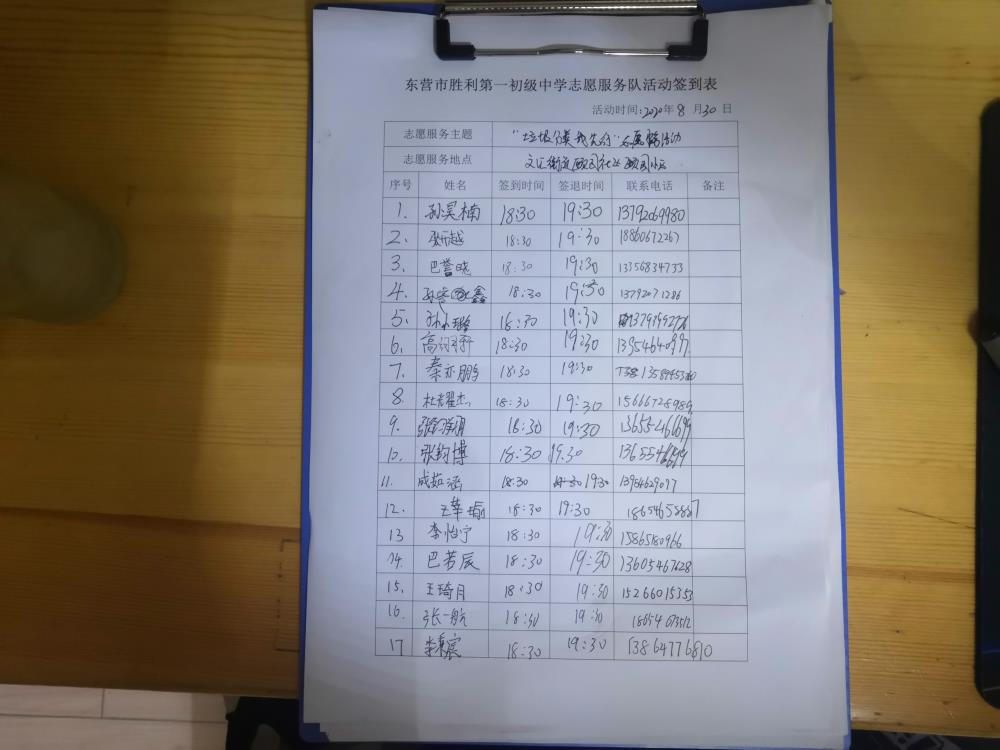 东营市胜利第一初级中学志愿服务队活动签到表
活动时间:2020年8月30日
志愿服务主题 "垃圾分类我先行"志愿服务活动
志愿服务地点 文汇街道
序号 姓名 签到时间 签退时间 联系电话 备注
1. 孙昊楠 18:30 19:30 13792069980
2. 18:30 19:30 18860672267
3. 巴誉晓 18:30 19:30 13356834733
4. 18:30 19:30 13792071286
5. 18:30 19:30
6. 18:30 19:30
7. 秦亦鹏 18:30 19:30
8. 杜耀杰 18:30 19:30
9. 18:30 19:30
10. 张钧博 18:30 19:30
11. 成茹涵 18:30 19:30 13954629077
12. 18:30 19:30
13 李怡宁 18:30 19:30 15865180966
14. 巴若辰 18:30 19:30 13605467628
15. 王琦月 18:30 19:30 15266015353
16. 张一航 18:30 19:30
17 18:30 19:30 13864776810